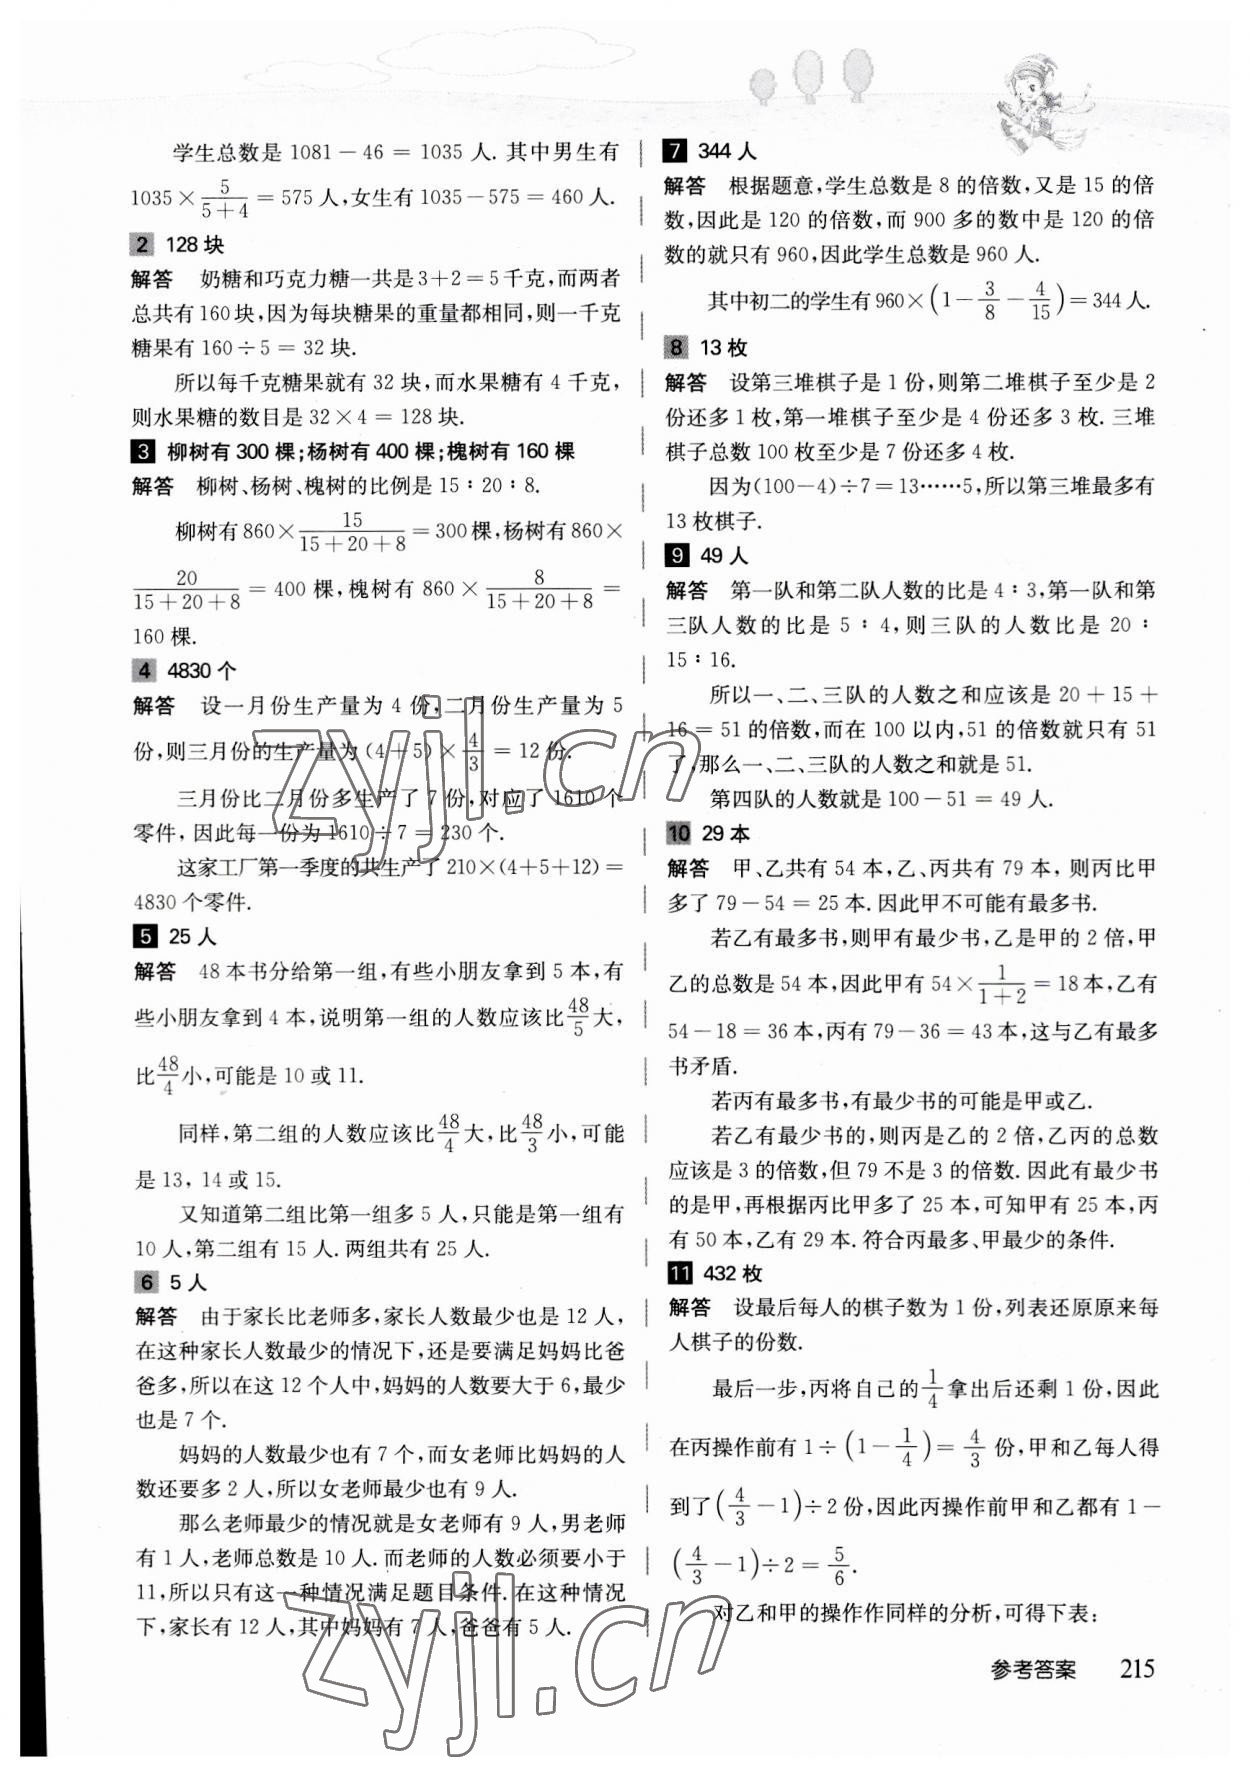 学生总数是 1081－46 ＝ 1035 人. 其中男生有
1035×5/(5+4)＝575 人,女生有 1035－575＝460 人.
2 128 块
解答 奶糖和巧克力糖一共是3＋2＝5千克,而两者
总共有160块,因为每块糖果的重量都相同,则一千克
糖果有 160÷5 ＝ 32 块.
所以每千克糖果就有 32 块,而水果糖有 4 千克,
则水果糖的数目是 32×4 ＝ 128 块.
3 柳树有 300 棵;杨树有 400 棵;槐树有 160 棵
解答 柳树、杨树、槐树的比例是 15∶20∶8.
柳树有 860×15/(15+20+8)＝300 棵,杨树有 860×
20/(15+20+8)＝400 棵,槐树有 860×8/(15+20+8)＝
160 棵.
4 4830 个
解答 设一月份生产量为 4 份,二月份生产量为 5
份,则三月份的生产量为 (4＋5)×4/3＝12 份.
三月份比二月份多生产了 7 份,对应了 1610 个
零件,因此每一份为 1610÷7＝230 个.
这家工厂第一季度的共生产了 210×(4＋5＋12)＝
4830 个零件.
5 25 人
解答 48 本书分给第一组,有些小朋友拿到 5 本,有
些小朋友拿到 4 本,说明第一组的人数应该比48/5大,
比48/4小,可能是 10 或 11.
同样,第二组的人数应该比48/4大,比48/3小,可能
是 13, 14 或 15.
又知道第二组比第一组多 5 人,只能是第一组有
10 人,第二组有 15 人. 两组共有 25 人.
6 5 人
解答 由于家长比老师多,家长人数最少也是 12 人,
在这种家长人数最少的情况下,还是要满足妈妈比爸
爸多,所以在这 12 个人中,妈妈的人数要大于 6,最少
也是 7 个.
妈妈的人数最少也有 7 个,而女老师比妈妈的人
数还要多 2 人,所以女老师最少也有 9 人.
那么老师最少的情况就是女老师有 9 人,男老师
有 1 人,老师总数是 10 人. 而老师的人数必须要小于
11,所以只有这一种情况满足题目条件. 在这种情况
下,家长有 12 人,其中妈妈有 7 人,爸爸有 5 人.
7 344 人
解答 根据题意,学生总数是 8 的倍数,又是 15 的倍
数,因此是 120 的倍数,而 900 多的数中是 120 的倍
数的就只有 960,因此学生总数是 960 人.
其中初二的学生有 960×(1－3/8－4/15)＝344 人.
8 13 枚
解答 设第三堆棋子是 1 份,则第二堆棋子至少是 2
份还多 1 枚,第一堆棋子至少是 4 份还多 3 枚. 三堆
棋子总数 100 枚至少是 7 份还多 4 枚.
因为(100－4)÷7＝13……5,所以第三堆最多有
13 枚棋子.
9 49 人
解答 第一队和第二队人数的比是 4∶3,第一队和第
三队人数的比是 5∶4,则三队的人数比是 20∶
15∶16.
所以一、二、三队的人数之和应该是 20＋15＋
16＝51 的倍数,而在 100 以内,51 的倍数就只有 51
了,那么一、二、三队的人数之和就是 51.
第四队的人数就是 100－51＝49 人.
10 29 本
解答 甲、乙共有 54 本,乙、丙共有 79 本,则丙比甲
多了 79－54＝25 本. 因此甲不可能有最多书.
若乙有最多书,则甲有最少书,乙是甲的 2 倍,甲
乙的总数是 54 本,因此甲有 54×1/(1+2)＝18本,乙有
54－18＝36 本,丙有 79－36＝43 本,这与乙有最多
书矛盾.
若丙有最多书,有最少书的可能是甲或乙.
若乙有最少书的,则丙是乙的 2 倍,乙丙的总数
应该是 3 的倍数,但 79 不是 3 的倍数. 因此有最少书
的是甲,再根据丙比甲多了 25 本,可知甲有 25 本,丙
有 50 本,乙有 29 本. 符合丙最多、甲最少的条件.
11 432 枚
解答 设最后每人的棋子数为 1 份,列表还原原来每
人棋子的份数.
最后一步,丙将自己的1/4拿出后还剩 1 份,因此
在丙操作前有 1÷(1－1/4)＝4/3 份,甲和乙每人得
到了(4/3－1)÷2 份,因此丙操作前甲和乙都有 1－
(4/3－1)÷2＝5/6.
对乙和甲的操作作同样的分析,可得下表:
参考答案 215
zyjl.cn
zyjl.cn